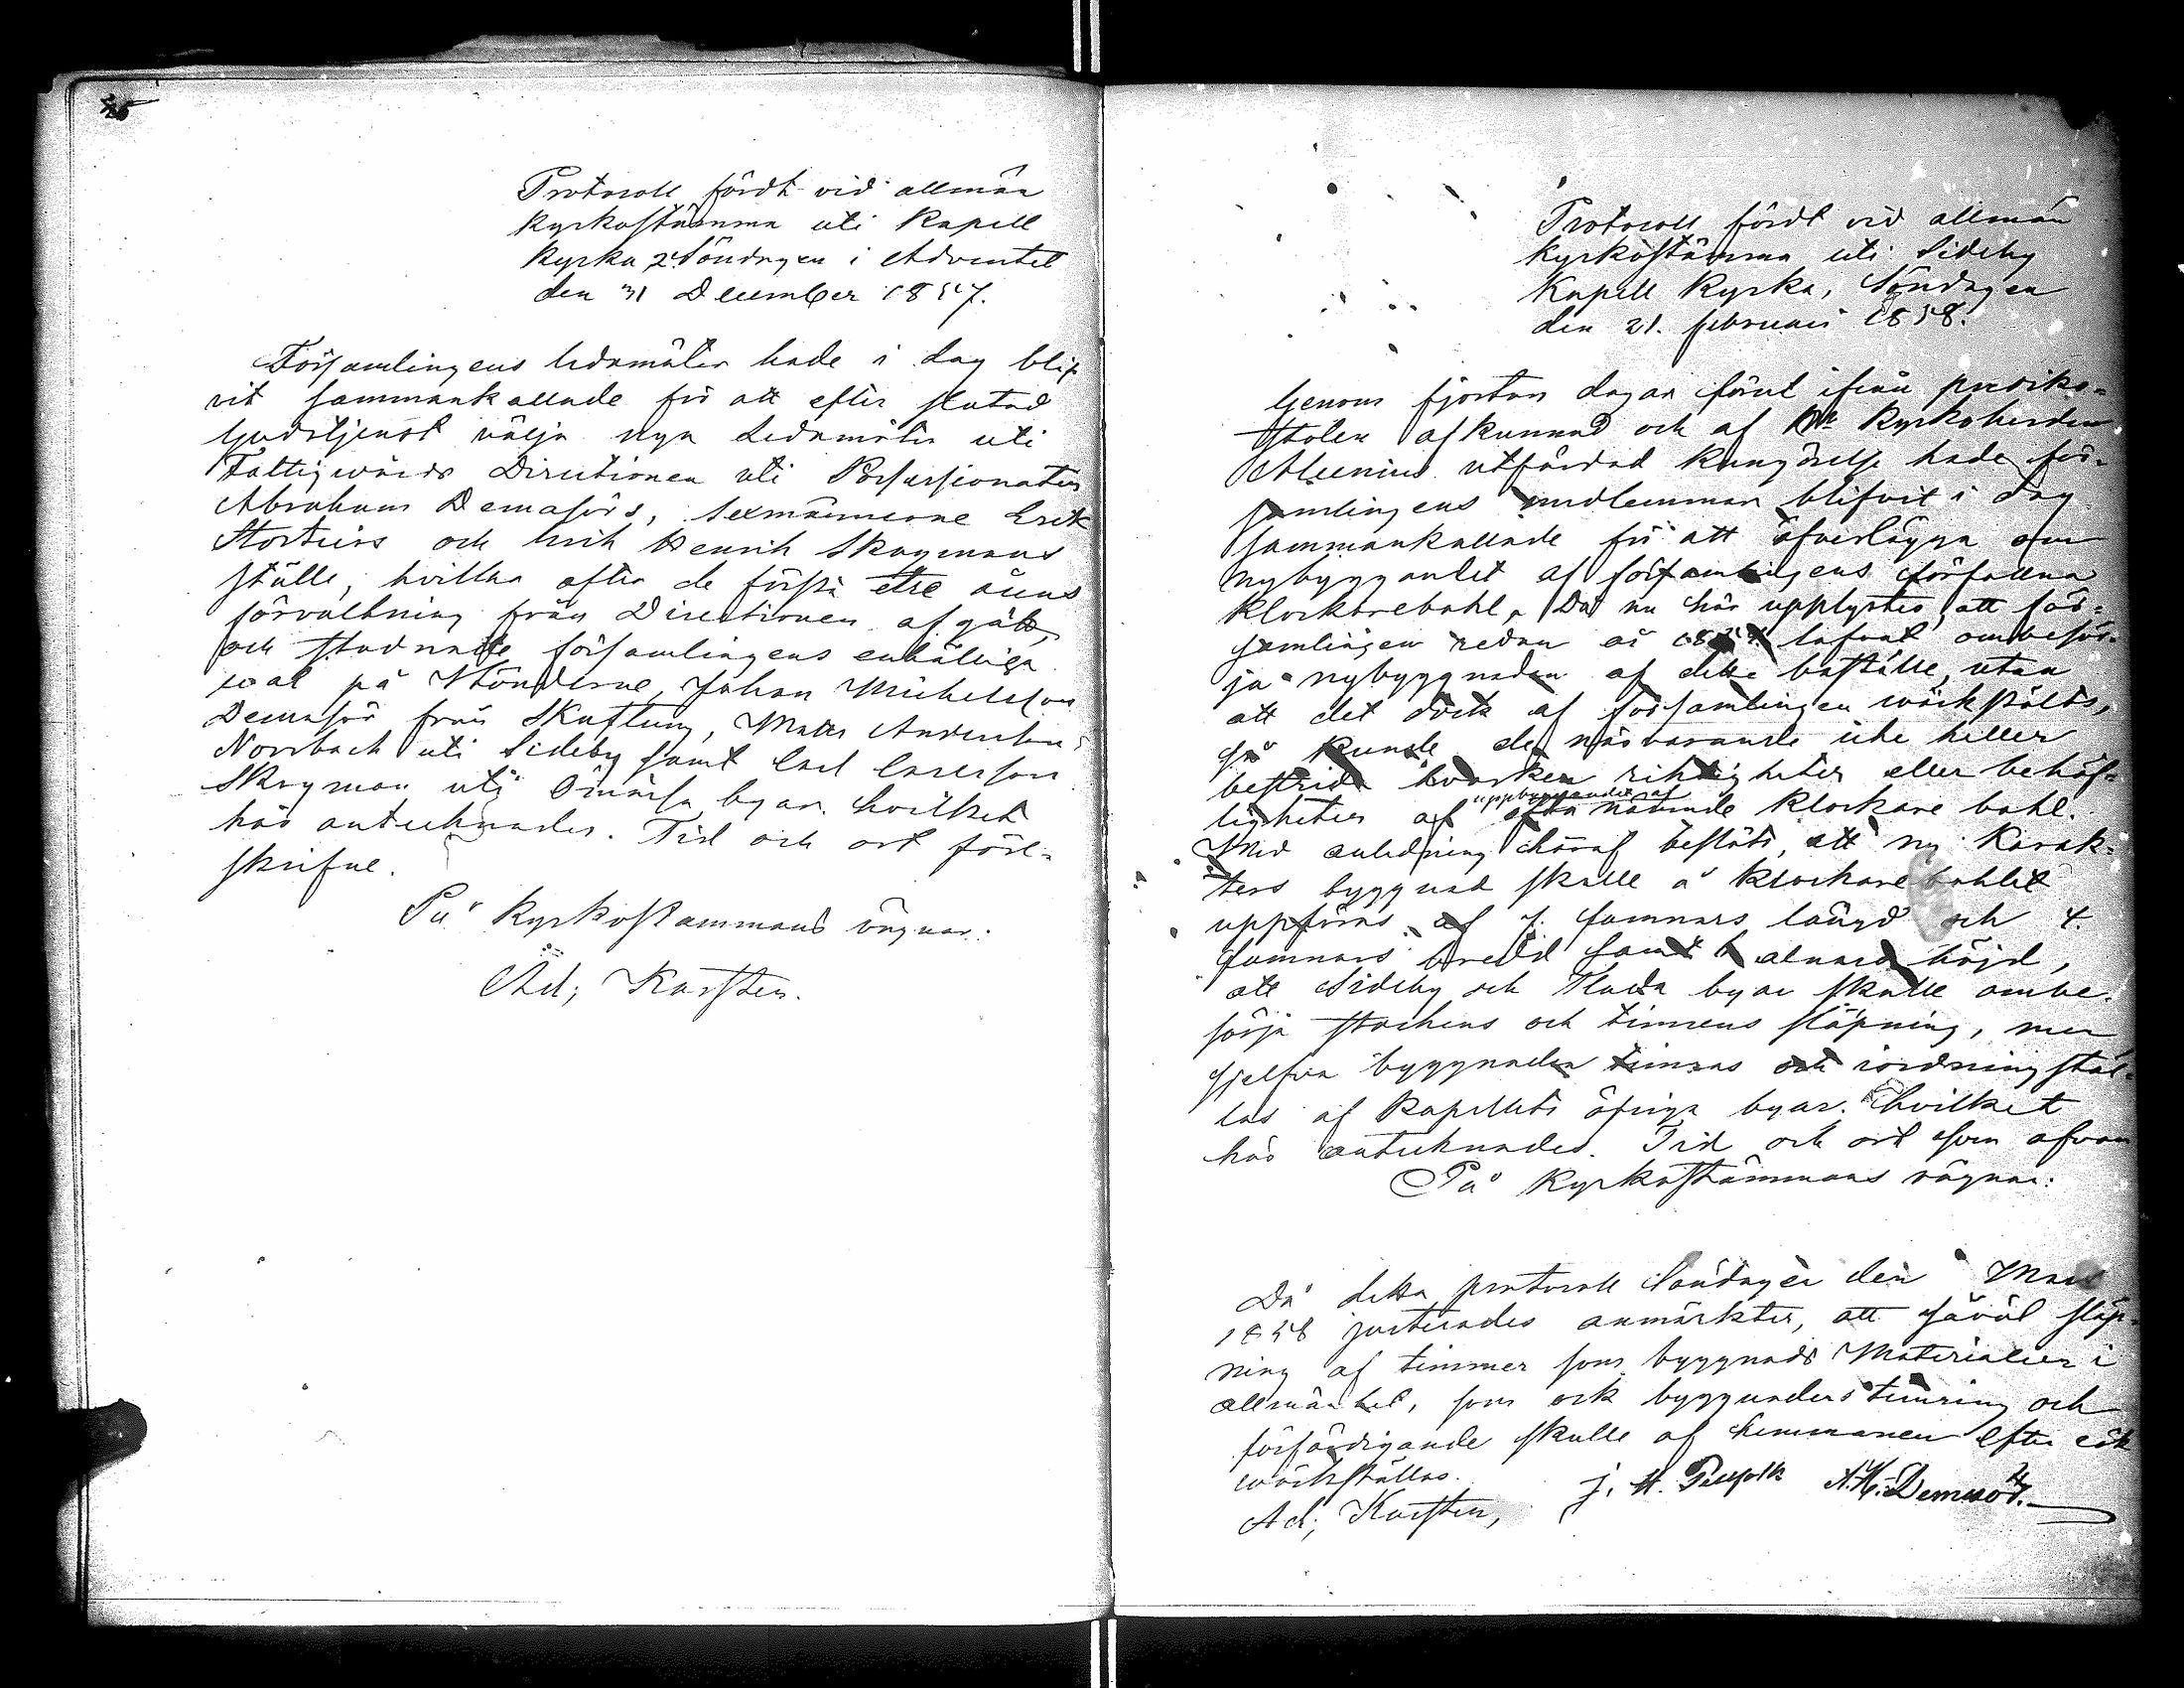 Protocoll fördt vid allmän
kyrkostämma uti Kapell
kyrka 2. Söndagen i Adventet
den December 1857.
Församlingens ledamöter hade i dag blif-
vit sammankallade för att efter slutad
Gudstjenst välja nya Ledamöter uti
Fattigvårds Directionen uti Possessionaten
Abraham Demasörs, Sexmännerne Erik
och Erich Henrik Skogmans
ställe, hvilka efter de förstå etre åens
förvaltning från Directionen afgått,
och stadnade församlingens enhälliga
wal på Bönderne Johan Michelsson
från Skaftung, Matts Andersson
Norrback uti Sideby samt Carl Carlsson
Skogman uti Ömossa byar. hvilket
här antecknades. Tid och ort före-
skrifne.
På Kyrkostämmans vägnar:
Ad; Karsten.
Protocoll fördt vid allmän
kyrkostämma uti Sideby
Kapell Kyrka, Söndagen
den 21. februari 1858.
Genom fjorton dagar förut ifrån prediko-
stolen afkunnad och af Kyrkoherden
Aleenius utfärdad kungörelse hade för-
samlingens medlemmar blifvit i dag
sammankallade för att öfverlägga om
nybyggandet af församlingens förfallna
klockarebohl. Då nu här upplystes, att för-
samlingen redan år lofvat ombesör-
ja nybyggnaden af detta boställe, utan
att det dock af församlingen wärkstälts,
så kunde de närvarande icke heller
bestrida hvarken riktigheten eller behöf-
ligheten af uppbyggandet af ofta nämnde klockare bohl.
Med anledning häraf beslöts, att ny Karak-
ters byggnad skulle å klockare bohlet
uppföras af 7. famnars längd och 4.
famnars bredd samt alnars höjd,
att Sideby och Flada byar skulle ombe-
sörja stockens och timrens släpning, men
sjelfva byggnaden timras och iordningstäl-
las af Kapellets öfriga byar. hvilket
här antecknades. Tid och ort som ofvan
På Kyrkostämmans vägnar:
Då detta protocoll Söndagen den Mars
1858 justerades anmärktes, att såväl släp-
ning af timmer som byggnads Materialier i
allmänhet, som ock byggnadens timring och
förfärdigande skulle af hemmanen efter
wärkställas.
Ad; Karsten,